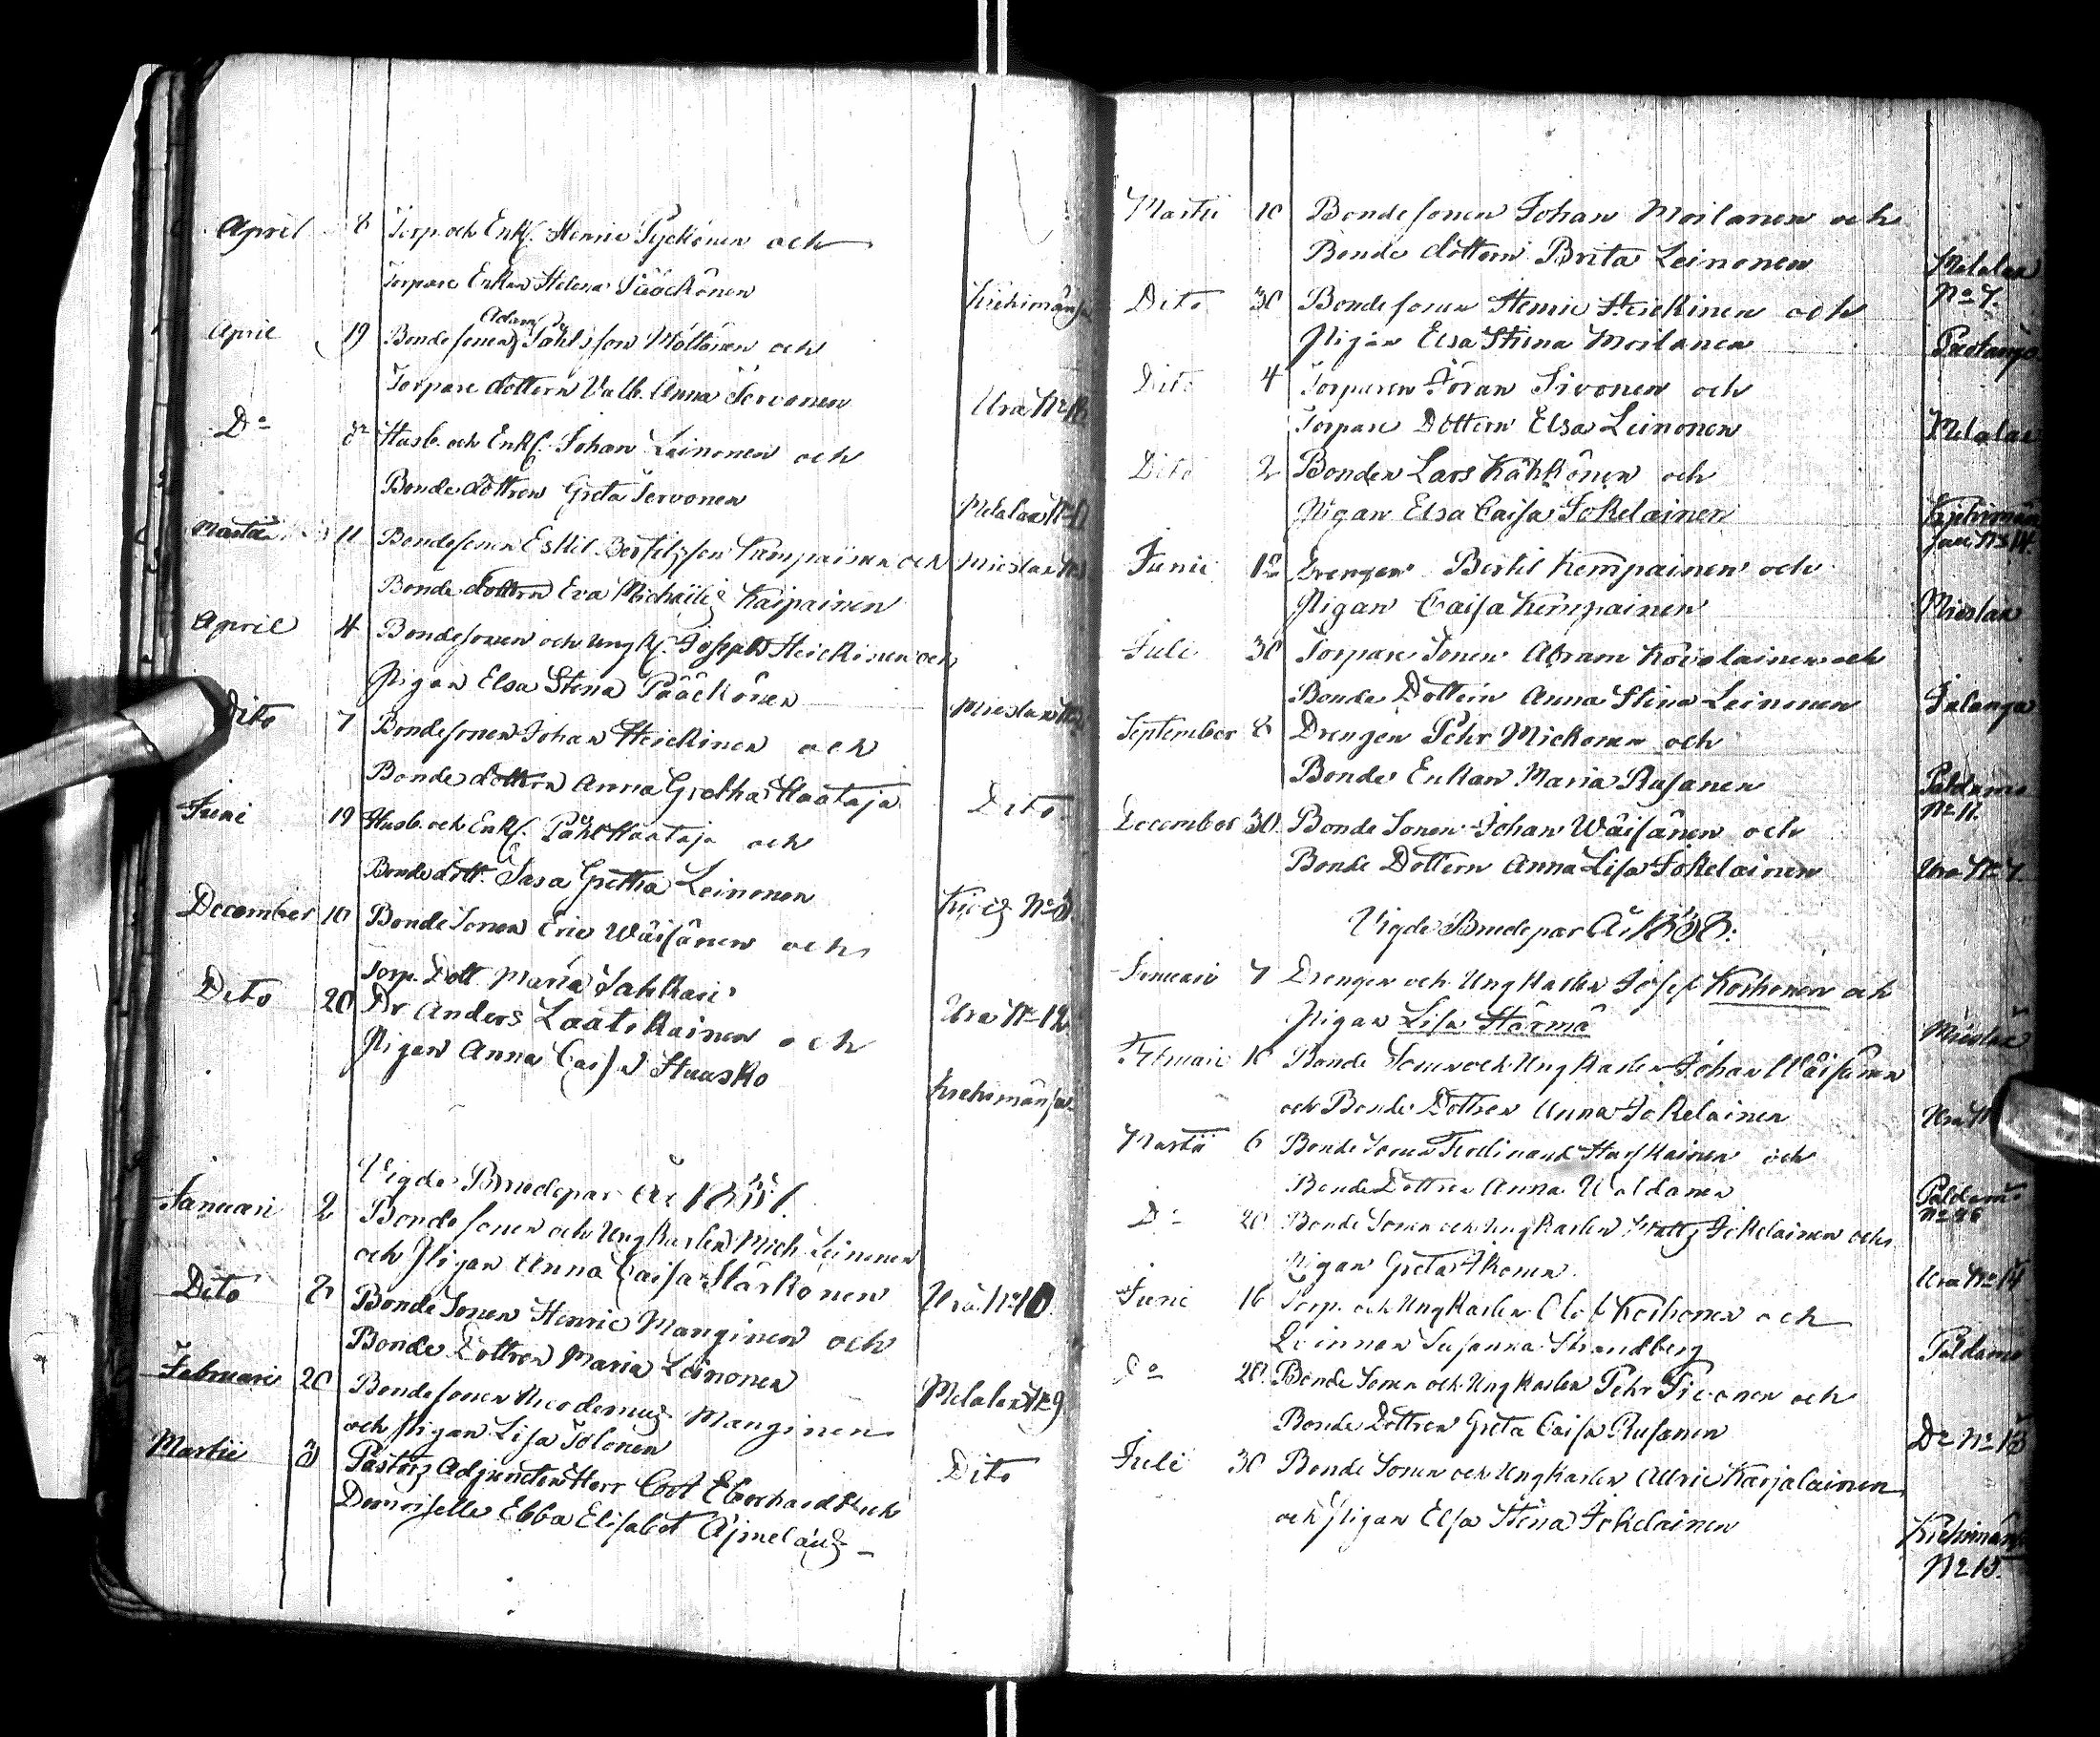 April 8 Torp. och Enkl. Henric Pyckönen och
Torpare Enkan Helena Pääckönen Kirchimänsu
Adam
April 19 Bondesonen Påhlsson Möttönen och
Torpare dottern Valb. Anna Servonen Ura No
Do Husb. och Enkl. Johan Leinonen och
Bonde dottren Greta Servonen Melalax No
Martii 11 Bondesonen Eskil Bertilsson Kempainen och Mieslax
Bonde dottren Eva Michaëlis Kaipainen
April 4 Bondesonen och Ungk. Joseph Heickinen och
Pigan Elsa Stina Pääckönen Mieslax
Dito 7 Bondesonen Johan Heickinen och
Bonde dottren Anna Gretha Haataja Dito
Juni 19 Husb. och Enkl. Påhl Haataja och
Bonde dott. Sara Gretha Leinonen
December 10 Bonde Sonen Eric Wäisänen och
Torp. Dott Maria Jahkari Ura No 12
Dito 20 Dr Anders Laatikainen och
Pigan Anna Caisa Huusko Kirchimänsu
Vigde Brudepar År
Januari 2 Bonde sonen och Ungkarlen Mich Leinonen
och Pigan Anna Caisa Härkönen Ura No 10
Dito 8 Bonde Sonen Henric Manginen och
Bonde Dottren Maria Leinonen Melalax No 9
Februari 20 Bondesonen Nicodemus Manginen
och Pigan Lisa Tolonen Dito
Martii 3 Pastors Adjuncten Herr Carl Eberhard och
Demoiselle Ebba Elisabet Ajmelæus
Martii 10 Bondesonen Johan Moilanen och
Bonde dottern Brita Leinonen Melalax
No 7.
Dito 30 Bondesonen Henric Heickinen och
Pigan Elsa Stina Moilanen Puolango
Dito 4 Torparen Göran Sivonen och
Torpare Dottern Elsa Leinonen Melalax
Dito 2 Bonden Lars Kähkönen och
Pigan Elsa Caisa Jokelainen Kirchimän
su No 14.
Junii Drengen Bertil Kempainen och
Pigan Caisa Kempainen Mieslax
Juli 30 Torpare Sonen Abram Kovalainen och
Bonde Dottern Anna Stina Leinonen Jalanga
September 8 Drengen Pehr Mickonen och
Bonde Enkan Maria Rusanen Paldamo
No 11.
December 30 Bonde Sonen Johan Wäisänen och
Bonde Dottern Anna Lisa Jokelainen Ura No 7.
Vigde Brudepar År 1838.
Januari 7 Drengen och Ungkarlen Josef Korhonen och
Pigan Lisa Härmä Mieslax
Februari 10 Bonde Sonen och Ungkarlen Johan Wäisänen
och Bonde Dottren Anna Jokelainen Ura No
Martii 6 Bonde Sonen Ferdinand Harkainen och
Bonde Dottren Anna Waldanen Paldamo
No 26
Do 20 Bonde Sonen och Ungkarlen Mattz Jokelainen och
Pigan Greta Akonen Ura No 14
Juni 16 Torp. och Ungkarlen Olof Korhonen och
Qvinnan Susanna Strandberg Paldamo
Do 20. Bonde Sonen och Ungkarlen Pehr Pivonen och
Bonde Dottren Greta Caisa Rusanen Do No 13
Juli 30 Bonde Sonen och Ungkarlen Ulric Karjalainen
och Pigan Elsa Stina Jokelainen Kirchimän
No 13.